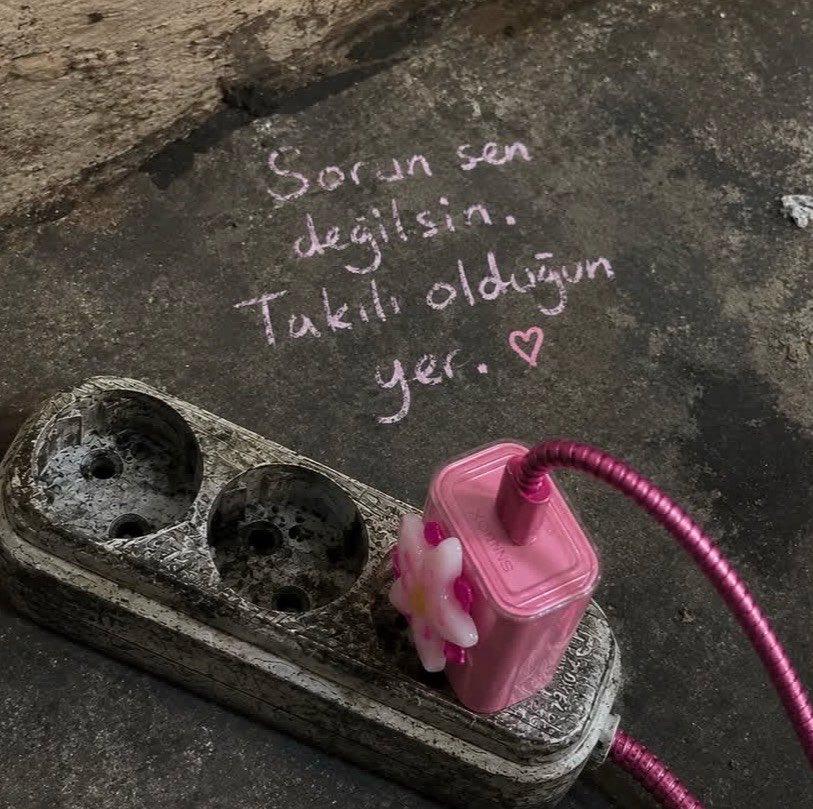 Sorun sen
değilsin.
Takılı olduğun
yer. ♡